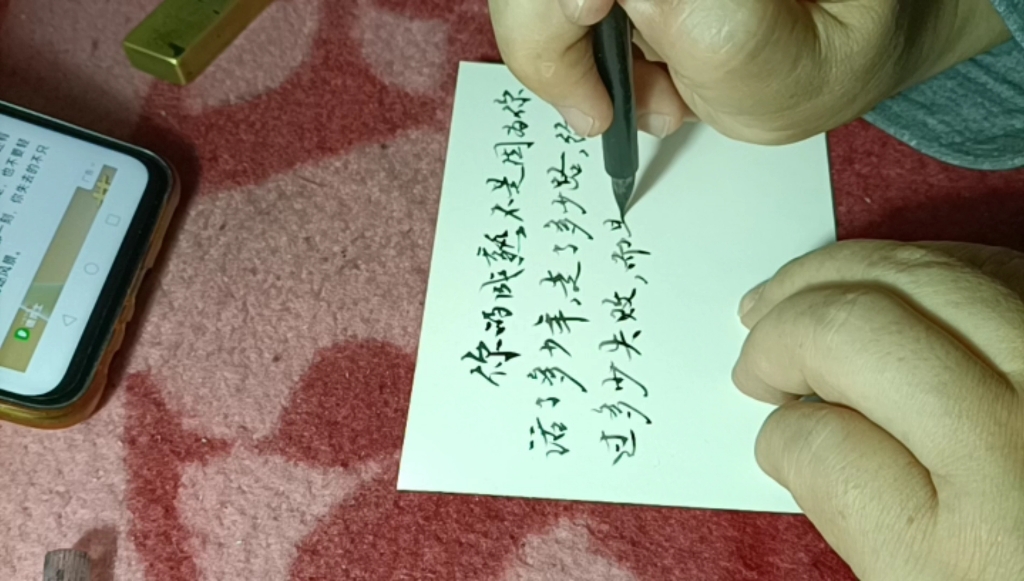 你的成熟不是因为你
活了多少年,走了多少路,经
过多少失败,而
也不要轻
刻,你失去的不只
风景。
广告